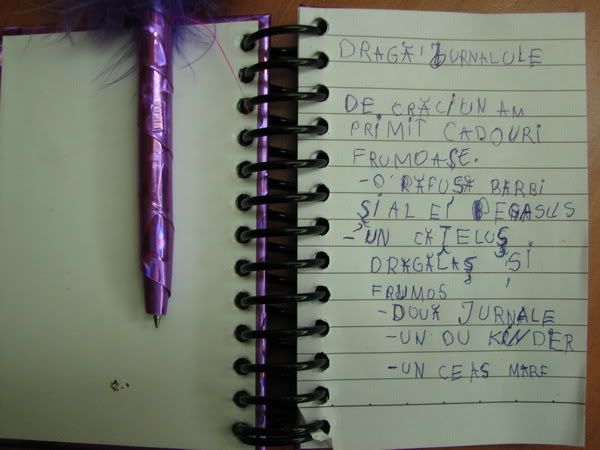 DRAGĂ JURNALULE
DE CRĂCIUN AM
PRIMIT CADOURI
FRUMOASE.
-O RAFUSĂ BARBI
ȘI AL EI PEGASUS
-UN CĂȚELUȘ
DRĂGĂLAȘ ȘI
FRUMOS
-DOUĂ JURNALE
-UN OU KINDER
-UN CEAS MARE